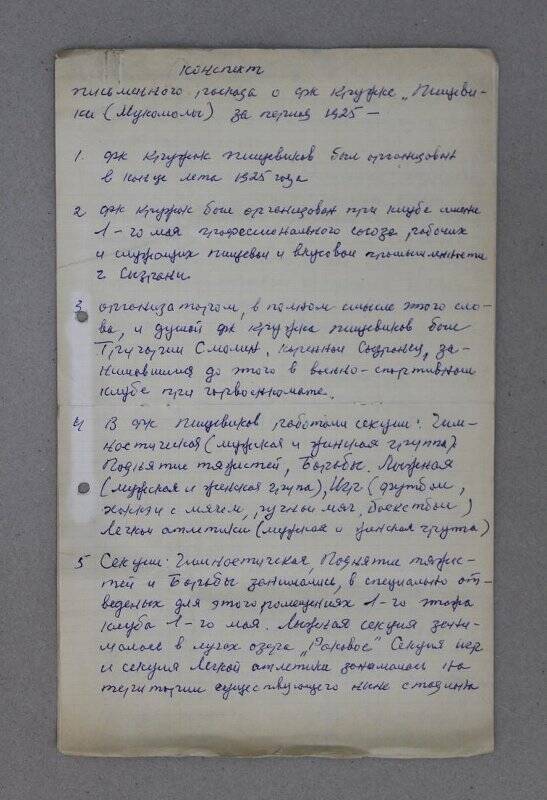 Конспект
письменного доклада о фк кружке „Пищеви-
ки (Мукомолы) за период 1925 —
1. фк кружок пищевиков был организован
в конце лета 1925 года
2 фк кружок был организован при клубе имени
1-го мая профессионального союза рабочих
и служащих пищевой и вкусовой промышленности
г. Сызрани
3 организатором, в полном смысле этого сло-
ва, и душой фк кружка пищевиков был
Григорий Смолин, коренной Сызранец, за-
нимавшийся до этого в военно-спортивном
клубе при горвоенкомате.
4 В фк пищевиков работали секции: Гим-
ностическая (мужская и женская группа)
Поднятие тяжестей, Борьбы. Лыжная
(мужская и женская група), Игр (футбол,
хоккей с мячем, ручной мяч, баскетбол)
Легкой атлетики (мужская и женская група)
5 Секции: Гимностическая, Поднятия тяжес-
тей и Борьбы занимались, в специально от-
веденых для этого помещениях 1-го этажа
клуба 1-го мая. Лыжная секция зани-
малась в лугах озера „Раковое" Секция игр
и секция Легкой атлетики занималась на
територии существующего ныне стадиона